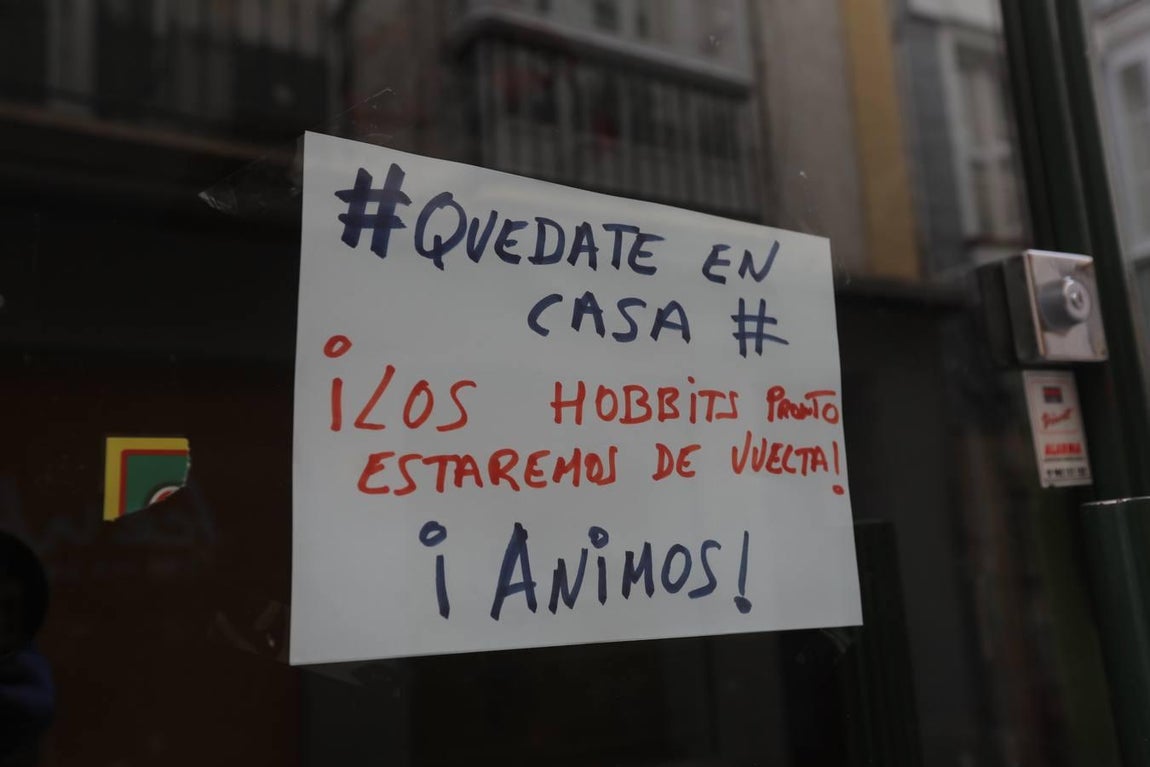 #QUEDATE EN
CASA #
¡LOS HOBBiTS PRONTO
ESTAREMOS DE VUELTA!
¡ANiMOS!
ALARMA